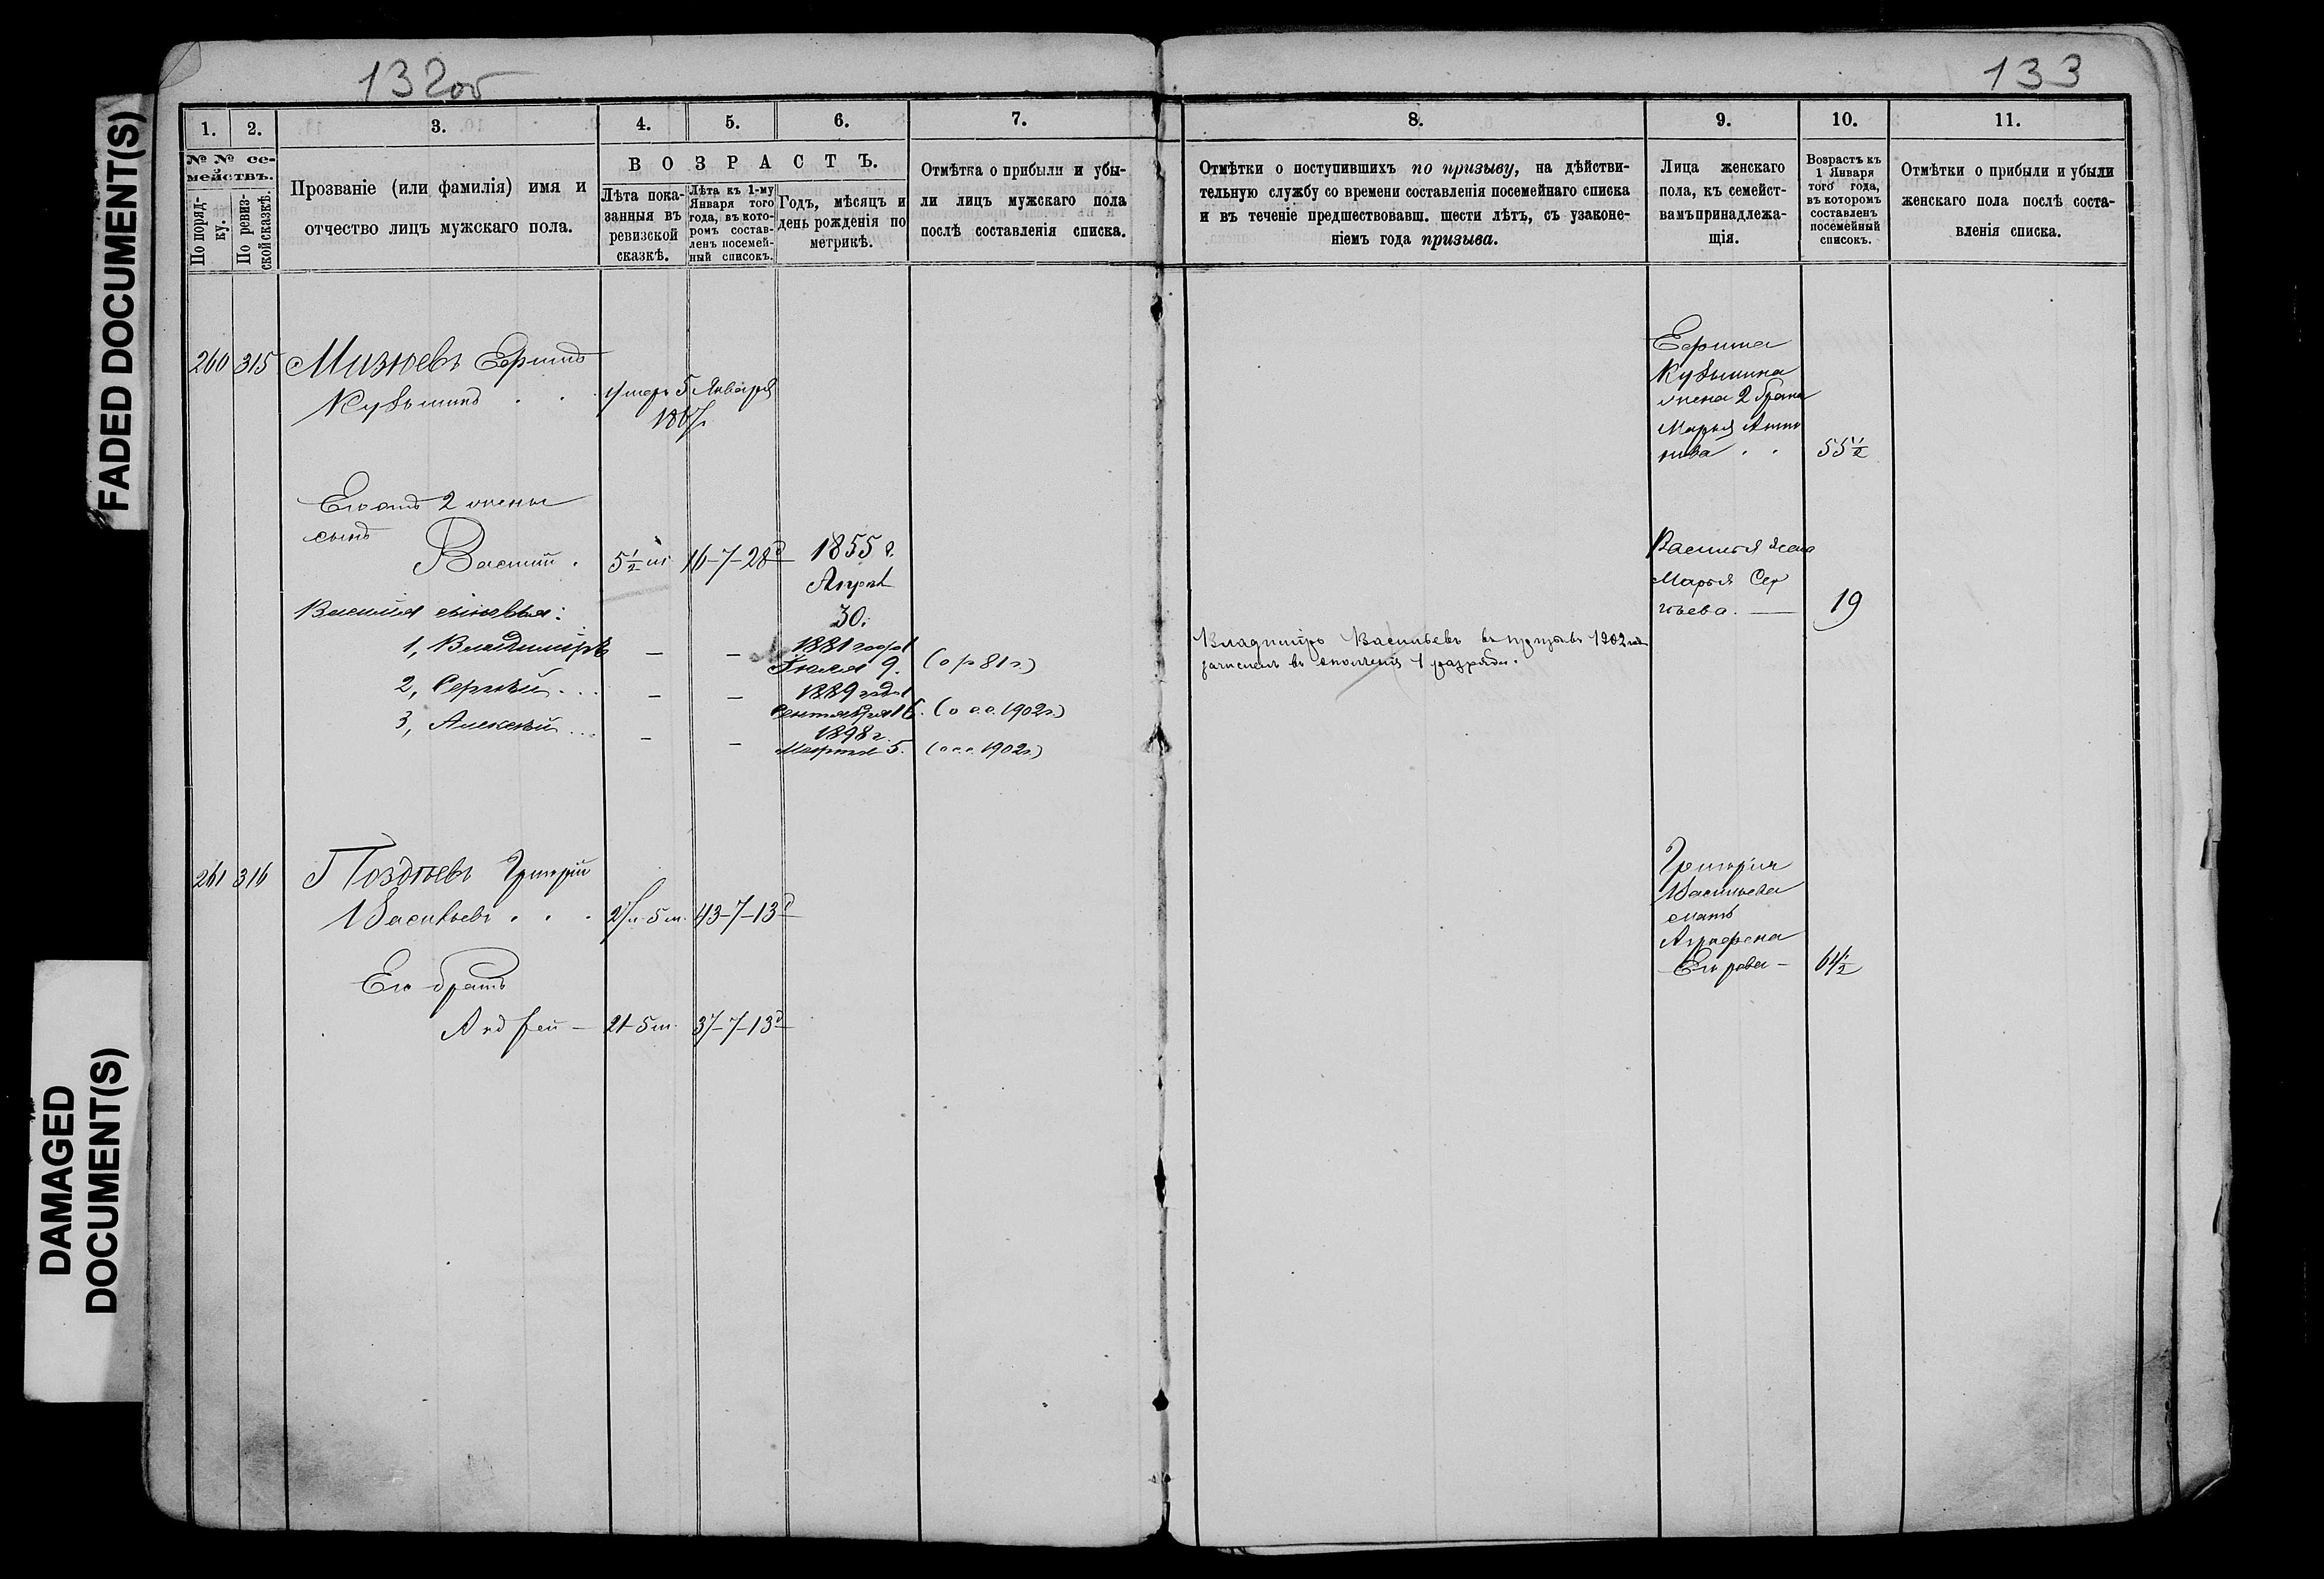 FADED DOCUMENT(S)
DAMAGED
DOCUMENT(S)
132об
1. 2. 3. 4. 5. 6. 7.
№ № се-
мействъ.
По поряд-
ку.
По ревиз-
ской сказкѣ.
Прозваніе (или фамилія) имя и
отчество лицъ мужскаго пола.
ВОЗРАСТЪ.
Лѣта пока-
занныя въ
ревизской
сказкѣ.
Лѣта къ 1-му
Января того
года, въ кото-
ромъ состав-
ленъ посемей-
ный списокъ.
Годъ, мѣсяцъ и
день рожденія по
метрикѣ.
Отмѣтка о прибыли и убы-
ли лицъ мужскаго пола
послѣ составленія списка.
260 315 Мизюевъ Ефимъ
Кузьминъ . . умеръ 5 Января
Его отъ 2 жены
сынъ
Василій . 5½ 16-7-28д 1855 г.
Апрѣл
30.
Василія сыновья:
1, Владимиръ — — 1881 года
Іюля 9. (о р 81 г.)
2, Сергѣй . . . — — 1889 года
Сентября 16. (о с.с. 1902 г.)
3, Алексѣй . . . — — 1898 г.
Марта 5. (о с.с. 1902 г.)
261 316 Поздѣевъ Григорій
Васильевъ . . . 27л. 5м. 43-7-13д
Его братъ
Андрей — 21-5м. 37-7-13д
133
8. 9. 10. 11.
Отмѣтки о поступившихъ по призыву, на дѣйстви-
тельную службу со времени составленія посемейнаго списка
и въ теченіе предшествовавш. шести лѣтъ, съ узаконе-
ніемъ года призыва.
Лица женскаго
пола, къ семейст-
вамъ принадлежа-
щія.
Возрастъ къ
1 Января
того года,
въ которомъ
составленъ
посемейный
списокъ.
Отмѣтки о прибыли и убыли
женскаго пола послѣ соста-
вленія списка.
Ефима
Кузьмина
жена 2 брака
Марья Анто
нова . . 55½
Василія жена
Марья Сер
гѣева. — 19
Владиміръ Васильевъ въ призывъ 1902 года
зачисленъ въ ополченіе 1 разряда.
Григорія
Васильева
мать
Аграфена
Егорова — 64½